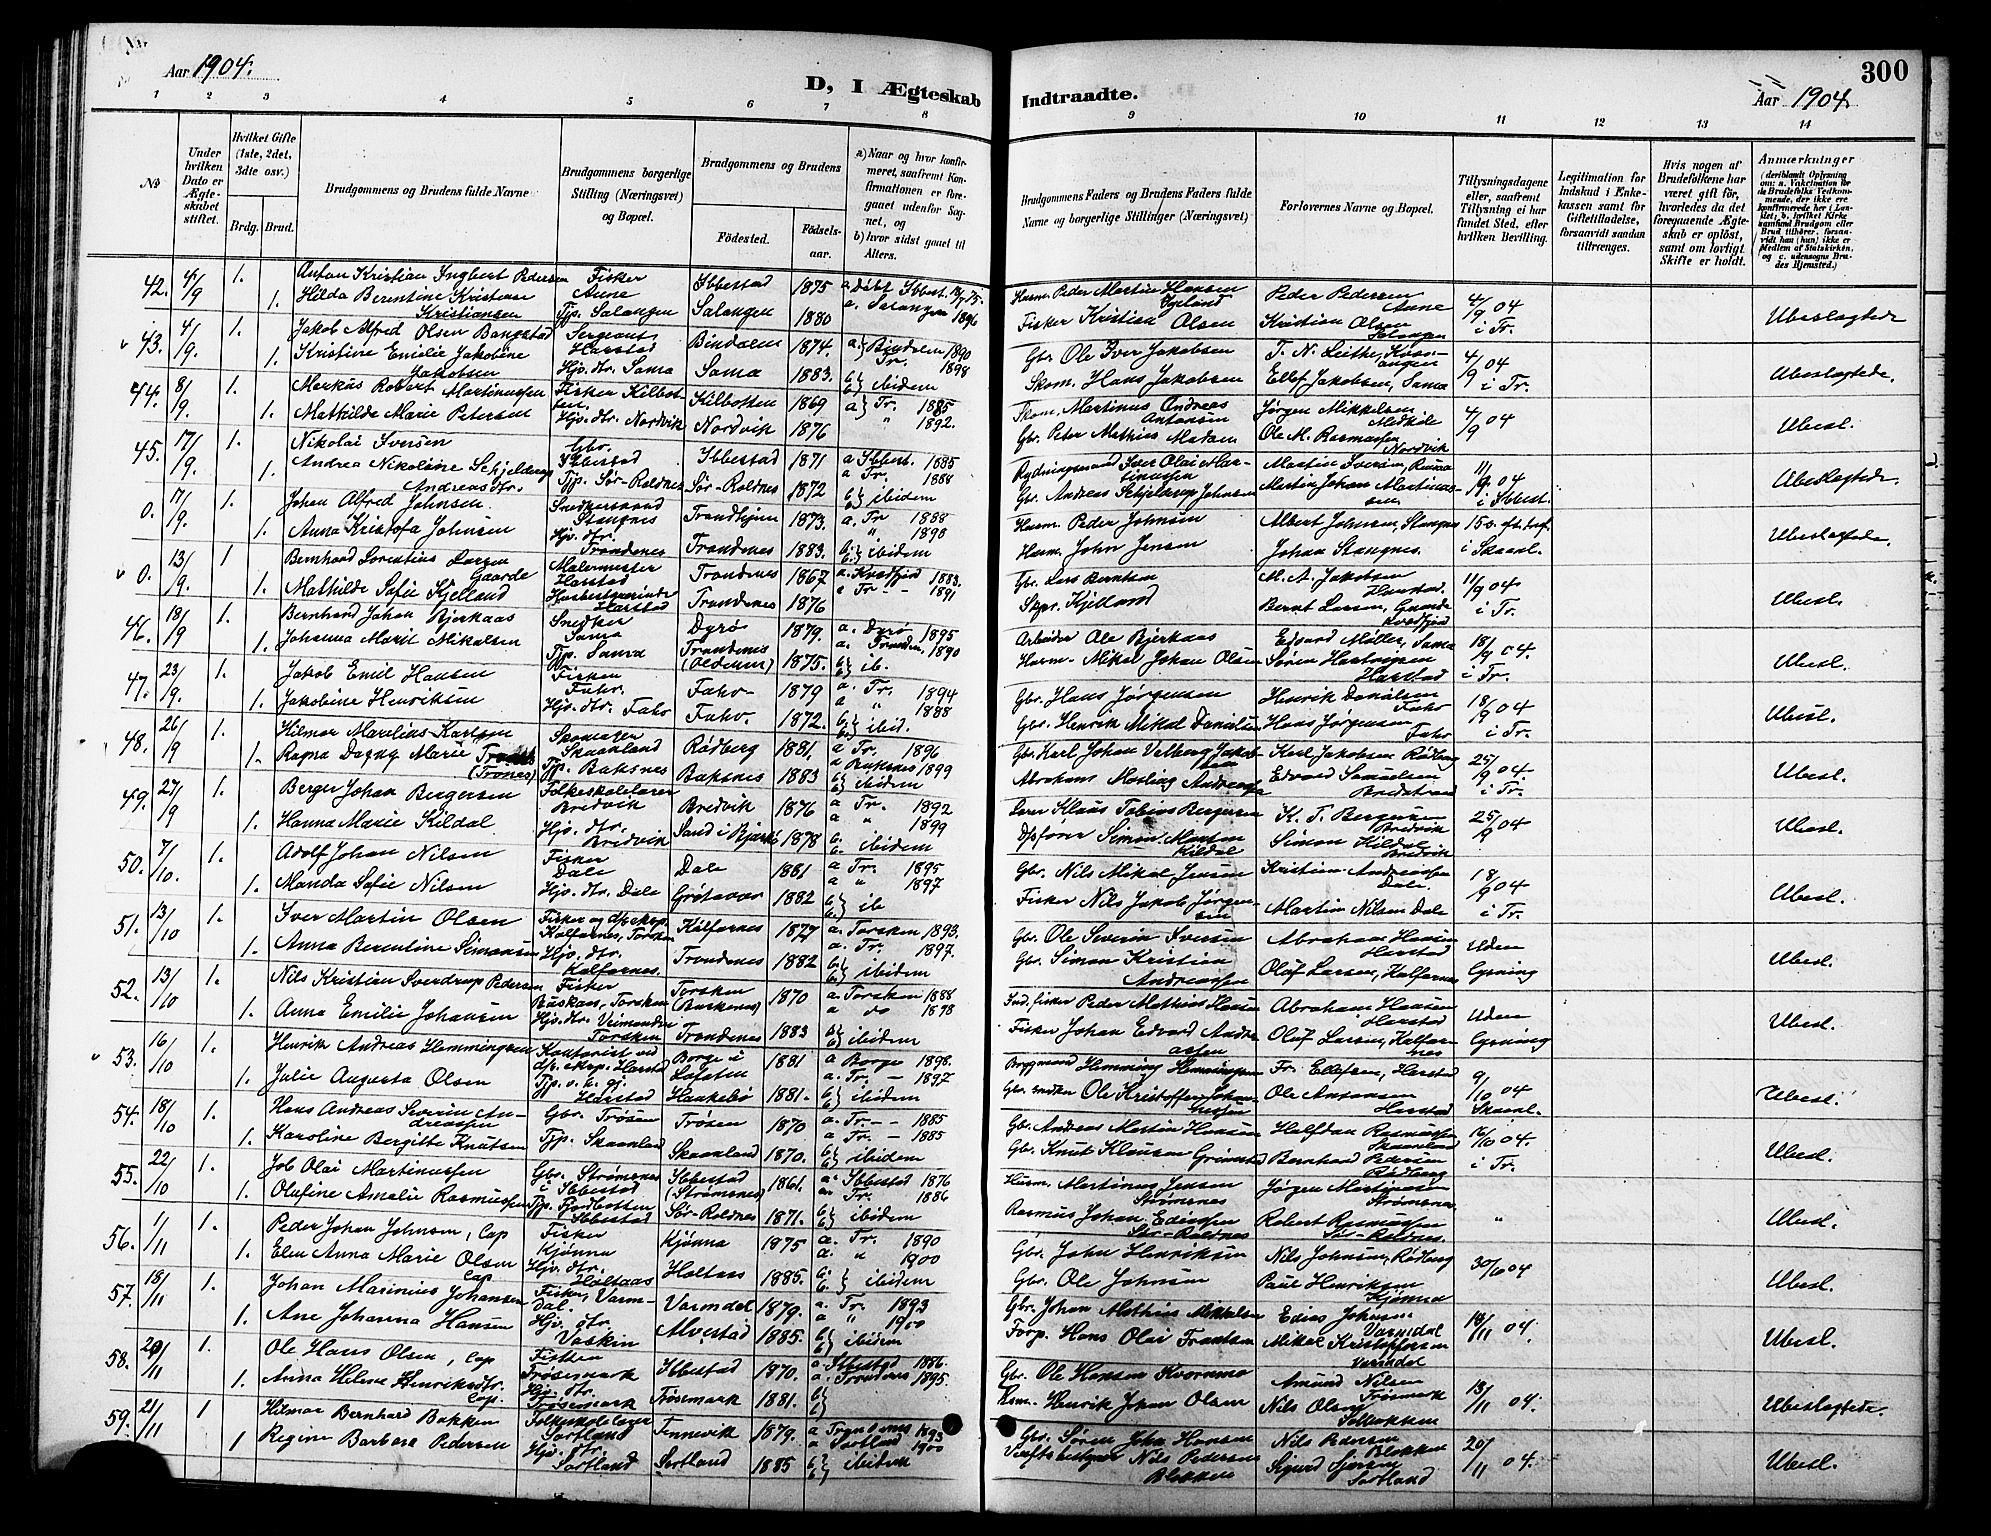 Aar 1904.
D, I Ægteskab
Indtraadte.
300
Aar 1904.
1 2 3 4 5 6 7 8 9 10 11 12 13 14
No
Under hvilken Dato er Ægteskabet stiftet.
Hvilket Gifte (1ste, 2det, 3dte osv.)
Brdg. Brud.
Brudgommens og Brudens fulde Navne
Brudgommens borgerlige Stilling (Næringsvei) og Bopæl.
Brudgommens og Brudens
Fødested.
Fødselsaar.
a) Naar og hvor konfirmeret, saafremt Konfirmationen er foregaaet udenfor Sognet, og
b) hvor sidst gaaet til Alters.
Brudgommens Faders og Brudens Faders fulde Navne og borgerlige Stillinger (Næringsvei)
Forlovernes Navne og Bopæl.
Tillysningsdagene eller, saafremt Tillysning ei har fundet Sted, efter hvilken Bevilling.
Legitimation for Indskud i Enkekassen samt for Giftetilladelse, forsaavidt saadan tiltrænges.
Hvis nogen af Brudefolkene har været gift før, hvorledes da det foregaaende Ægteskab er opløst, samt om lovligt Skifte er holdt.
Anmærkninger (deriblandt Oplysning om: a. Vakcination for de Brudefolks Vedkommende, der ikke ere konfirmerede her i Landet; b. hvilket Kirkesamfund Brudgom eller Brud tilhører, forsaavidt han (hun) ikke er Medlem af Statskirken, og c. udensogns Brudes Hjemsted.)
42. 4/9 1. Anton Kristian Ingbert Pedersen Fisker Aune Ibbestad 1875 Husm. Peder Martin Hansen Peder Pedersen Aune 4/9 04 i Tr. Ubeslægtede
1. Hilda Berentine Kristense Kristiansen Tjp. Salangen Salangen 1880 a. Salangen 1896 Fisker Kristian Olsen Kristian Olsen Salangen
43. 4/9. 1. Jakob Alfred Olsen Bangstad Sergeant Harstad Bindalen 1874. a. Bindalen 1890 Gbr. Ole Iver Jakobsen 4/9 04 i Tr. Ubeslægtede.
1. Kristine Emelie Jakobine Jakobsen Hjv. dtr. Sama Sama 1883. Tr. 1898 ibidem Skom. Hans Jakobsen Ellef Jakobsen, Sama
44. 8/9. 1. Markus Robert Martinussen Fisker Kilbotten Kilbotten 1869 a Tr. 1885 Martinus Andreas Antonsen Jørgen Mikkelsen 4/9 04 Ubesl.
1. Mathilde Marie Petersen Hjv. dtr. Nordvik Nordvik 1876 " 1892. Gbr. Peter Mathias Madsen Ole M. Rasmussen Nordvik
45. 17/9. 1. Nikolai Iversen Gbr. Ibbestad Ibbestad 1871 a Ibbest. 1885 Rydningsmand Iver Olai Martinussen Martin Iversen 11/9 04 i Ibbest. Ubeslægtede.
1. Andrea Nikoline Schjelderup Andreasdtr. Tjp. Sør-Roldnes Sør-Roldnes 1872 a Tr. 1888 ibidem Gbr. Andreas Schjelderup Johnsen Martin Johan Martinussen
0. 17/9. 1. Johan Alfred Johnsen. Snedkersvend Stangnes Trondhjem 1873. a. Tr 1888 Husm. Peder Johnsen Albert Johnsen, Stangnes i Skaanl. Ubeslægtede.
1. Anna Kristofa Johnsen Hjv. dtr. Trondenes Trondenes 1883. " 1890 ibidem Husm. John Jensen Johan Stangnes.
0. 13/9. 1 Bernhard Lorentius Larsen Gaarde Malermester Harstad Trondenes 1867 a. Kvædfjord 1883. Gbr. Lars Berntsen M. A. Jakobsen Harstad. 11/9 04 i Tr. Ubesl.
1. Mathilde Sofie Kjelland Harstad Trondenes 1876 a Tr - - 1891 Skpr. Kjelland Bernt Larsen, Gaarde Kvædfjord
46. 18/9 1. Bernhard Johan Bjerkaas Snedker Sama Dyrø 1879. a. Dyrø 1895 Arbeider Ole Bjerkaas Edvard Møller, Sama 18/9 04. i Tr. Ubesl.
1. Johanna Marit Mikalsen Tjp. Sama Trondenes 1875. a. Tronden. 1890 ib. Husm. Mikal Johan Olsen Søren Hartvigsen Harstad
47. 23/9. 1. Jakob Emil Hansen Fisker Fahr. Fahr 1879 a. Tr. 1894 Gbr. Hans Jørgensen Henrik Danielsen Fahr 18/9 04 i Tr. Ubesl.
1. Jakobine Henriksen Hjv. dtr. Fahr Fahr. 1872. a " 1888 ibid. Gbr. Henrik Mikal Danielsen Hans Jørgensen Fahr
48. 26/9 1. Hilmar Marelius Karlsen Skomager Skaanland Rødberg 1881. a Tr. 1896 Gbr. Karl Johan Valberg Jakobsen Karl Jakobsen Rødberg 25/9 04. i Tr. Ubesl.
1. Ragna Dagny Marie (Tronæs) Tjp. Baksnes Baksnes 1883 a Baksnes 1899 ibidem Abraham Andreassen Edvard Samuelsen Bredstrand
49. 27/9 1. Berger Johan Bergersen Folkeskolelærer Bredvik Bredvik 1876 a Tr. 1892 Klaus Tobias Bergersen K. T. Bergersen Bredvik 25/9 04 Ubesl.
1. Hanna Marie Kildal Hjv. dtr. Bredvik Sand i Bjarkø 1878 a " 1899 ibidem Simon Morten Kildal Simon Kildal Bredvik
50. 7/10. 1. Adolf Johan Nilsen Fisker Dale Dale 1881 a Tr. 1895 Gbr. Nils Mikal Jensen Kristian Andreassen Dale. 18/9 04 i Tr. Ubesl.
1. Manda Sofie Nilsen Hjv. dtr. Dale Grøtavær 1882 a " 1897 ib Fisker Nils Jakob Jørgensen Martin Nilsen Dale
51. 13/10 1. Iver Martin Olsen Fisker og Kalfarnes, Torsken Kalfarnes 1877 a. Torsken 1893. Gbr. Ole Severin Iversen Abraham Hansen Harstad Uden Lysning Ubesl.
1. Anna Berentine Simonsen Hjv. dtr. Kalfarnes. Trondenes 1882 a. Tr. 1897. ibidem Gbr. Simon Kristian Andreassen Olaf Larsen, Kalfarnes
52. 13/10 1. Nils Kristian Sverdrup Pedersen Fisker Torsken Torsken 1870 a Torsken 1888 Peder Mathias Hansen Abraham Hansen Harstad Uden Lysning Ubesl.
1. Anna Emilie Johansen Hjv. dtr. Torsken Trondenes 1883 a do 1898 ibidem Fisker Johan Edvard Andreassen Olaf Larsen, Kalfarnes
53. 16/10 1. Henrik Andreas Hemmingsen Kontorist ved dpskexp. Harstad Borge i Lofoten 1881 a Borge 1898. Hemming Hemmingsen Fr. Ellefsen, Harstad 9/10 04 Skaanl. Ubesl.
1. Julie Augusta Olsen Harstad 1881. a. Tr. - 1897 ibidem Ole Kristoffer Johannessen Ole Antonsen Harstad
54. 18/10 1. Hans Andreas Severin Andreassen Gbr. Trøsen Trøsen 1870 a. Tr. - - 1885 Gbr. Andreas Martin Hansen Halfdan Rasmussen Skaanland 16/10 04. i Tr. Ubesl.
1. Karoline Bergitte Knutsen Tjp. Skaanland Skaanland 1870. a Tr. - 1885 ibidem Gbr. Knut Klausen Grønstad Bernhard Pedersen Rødberg
55. 22/10 1. Job Olai Martinussen Gbr. Strømsnes i Ibbestad Ibbestad (Strømsnes) 1861. a. Ibbestad 1876 Husm. Martinus Jensen Strømsnes Jørgen Martinsen Strømsnes " Ubesl.
1. Olufine Amalie Rasmussen Tjp. Fjordbotten Ibbestad Sør-Roldnes 1871. Tr. 1886 ibidem Rasmus Johan Ediassen Sør-Roldnes Robert Rasmussen Sør-Roldnes.
56. 1/11 1. Peder Johan Johnsen, Cap Fisker Kjønna Kjønna 1875 a. Tr. 1890 Gbr. John Henriksen Nils Johnsen, Rødberg 30/6 04 Ubesl.
1. Elen Anna Marie Olsen Cap Hjv. dtr. Holtaas Holtaas 1885. a. " 1900 ibidem Gbr. Ole Johnsen Paul Henriksen Kjønna
57. 18/11 1. Johan Marinius Johansen Fisker, Varmdal. Varmdal 1879. a. Tr. 1893 Gbr. Johan Mathias Mikkelsen Edias Johnsen Varmdal 18/11 04. Ubesl.
1. Ane Johanna Hansen Hjv. dtr. Vaskin Alvestad 1885. a " 1900 ibidem Forp. Hans Olai Frantsen Mikal Kristoffersen Varmdal
58. 20/11 1. Ole Hans Olsen, Cap Fisker Trøsemark Ibbestad 1870. a Ibbestad 1886. Gbr. Ole Hansen Amund Nilsen Trøsemark 13/11 04. Ubeslægtede.
1. Anna Helene Henriksdtr. Cap. Hjv. dtr. Trøsemark Trøsemark 1881. a. Trondenes 1895. Henrik Johan Olsen Nils Olsen
59. 21/11 1 Hilmar Bernhard Bakken Folkeskolelærer Sortland Tennevik 1879. a Trondenes 1893 Gbr. Søren Johan Hansen Nils Pedersen Blokken 20/11 04. Ubesl.
1 Regine Barbara Pedersen Hjv. dtr. Sortland Sortland 1885 a Sortland 1900 ibidem Nils Pedersen Blokken Sigurd Sortland